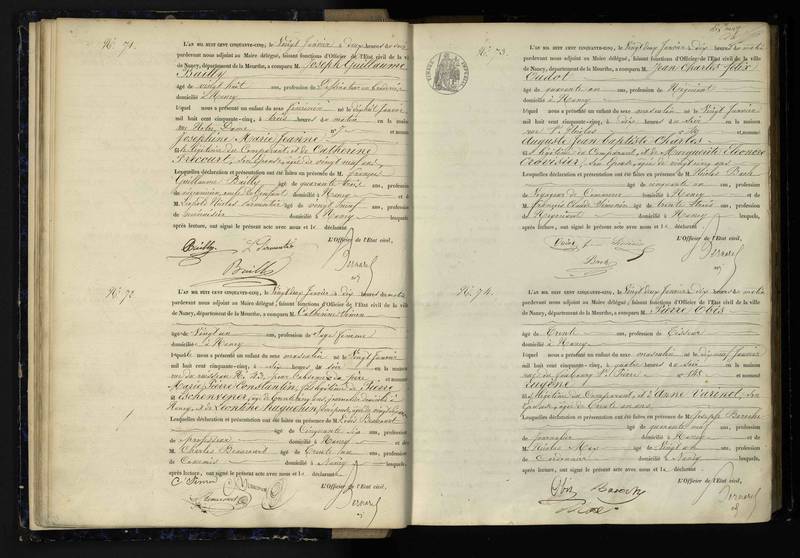 No. 71.
L'AN MIL HUIT CENT CINQUANTE-CINQ, le Vingt Janvier à deux heures du soir
pardevant nous adjoint au Maire délégué, faisant fonctions d'Officier de l'Etat civil de la ville
de Nancy, département de la Meurthe, a comparu M. Joseph Guillaume
Bailly
âgé de vingt huit ans, profession de
domicilié à Nancy
lequel nous a présenté un enfant du sexe féminin né le dixhuit Janvier
mil huit cent cinquante-cinq, à trois heures du matin en la maison
rue Notre Dame n° et nommé
Joséphine Marie Jeanne
fille légitime du Comparant, et de Catherine
Précourt, son épouse, âgée de vingt six ans
Lesquelles déclaration et présentation ont été faites en présence de M. François
Guillaume Bailly âgé de quarante trois ans, profession
de domicilié à Nancy et de
M. Léopold Nicolas Parmentier âgé de vingt neuf ans, profession
de menuisier domicilié à Nancy lesquels,
après lecture, ont signé le présent acte avec nous et le déclarant
L'Officier de l'Etat civil,
Bailly L. Parmentier
Bailly
Bernard
No. 72
L'AN MIL HUIT CENT CINQUANTE-CINQ, le Vingt deux Janvier à dix heures du matin
pardevant nous adjoint au Maire délégué, faisant fonctions d'Officier de l'Etat civil de la ville
de Nancy, département de la Meurthe, a comparu M. Catherine Simon
âgé de Vingt un ans, profession de Sage femme
domicilié à Nancy
Laquelle nous a présenté un enfant du sexe masculin né le Vingt Janvier
mil huit cent cinquante-cinq, à six heures du soir en la maison
rue du ruisseau No. 23, pour l'absence du père et nommé
Marie Pierre Constantin, fils légitime de Pierre
Eschenvener, âgé de ans, journalier domicilié à
Nancy, et de Léontine Haguenin, son épouse, âgée de vingt ans
Lesquelles déclaration et présentation ont été faites en présence de M. Louis
âgé de Cinquante six ans, profession
de professeur domicilié à Nancy et de
M. Charles Beaucourt âgé de trente un ans, profession
de Commis domicilié à Nancy lesquels,
après lecture, ont signé le présent acte avec nous et la déclarante
C. Simon
L'Officier de l'Etat civil,
Bernard
No. 73.
L'AN MIL HUIT CENT CINQUANTE-CINQ, le Vingt deux Janvier à dix heures du matin
pardevant nous adjoint au Maire délégué, faisant fonctions d'Officier de l'Etat civil de la ville
de Nancy, département de la Meurthe, a comparu M. Jean Charles Félix
Oudot
âgé de quarante un ans, profession de Négociant
domicilié à Nancy
lequel nous a présenté un enfant du sexe masculin né le Vingt Janvier
mil huit cent cinquante-cinq, à dix heures du soir en la maison
rue St. Nicolas n° et nommé
Auguste Jean Baptiste Charles
fils légitime du Comparant, et de Marguerite Eléonore
Crovisier, son épouse, âgée de vingt cinq ans
Lesquelles déclaration et présentation ont été faites en présence de M. Nicolas Bach
âgé de cinquante un ans, profession
de Voyageur de Commerce domicilié à Nancy et de
M. François Claude Simonin âgé de trente trois ans, profession
de Négociant domicilié à Nancy lesquels,
après lecture, ont signé le présent acte avec nous et le déclarant
L'Officier de l'Etat civil,
Oudot Simonin
Bach
Bernard
No. 74.
L'AN MIL HUIT CENT CINQUANTE-CINQ, le Vingt deux Janvier à dix heures du matin
pardevant nous adjoint au Maire délégué, faisant fonctions d'Officier de l'Etat civil de la ville
de Nancy, département de la Meurthe, a comparu M. Pierre Obis
âgé de Trente ans, profession de Tisseur
domicilié à Nancy
lequel nous a présenté un enfant du sexe masculin né le dix neuf Janvier
mil huit cent cinquante-cinq, à quatre heures du soir en la maison
rue du faubourg St. Pierre n° et nommé
Eugène
fils légitime du Comparant, et d'Anne Varinot, son
épouse, âgée de Trente ans
Lesquelles déclaration et présentation ont été faites en présence de M. Joseph Baroche
âgé de quarante neuf ans, profession
de journalier domicilié à Nancy et de
M. Nicolas âgé de Vingt un ans, profession
de Cordonnier domicilié à Nancy lesquels,
après lecture, ont signé le présent acte avec nous et le déclarant
L'Officier de l'Etat civil,
Obis Baroche
Bernard